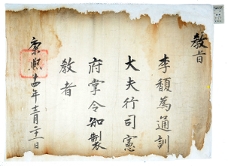 教旨
李䪿為通訓
大夫行司憲
府掌令知製
教者
康熙十四年三月二十三日